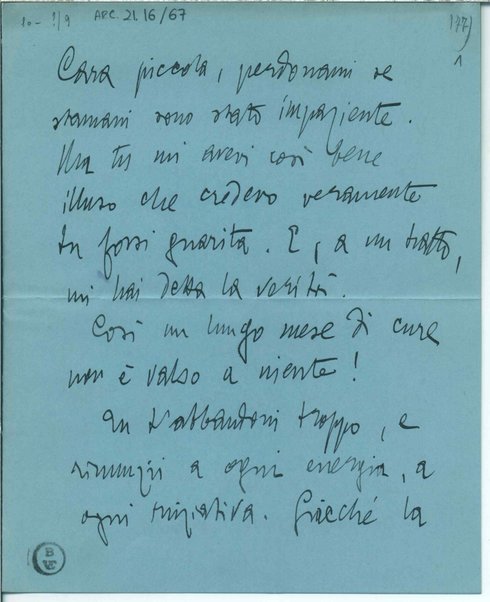 10 - 1/9 ARC. 21.16/67 177)
1
Cara piccola, perdonami se
stamani sono stato impaziente.
Ma tu mi avevi così bene
illuso che credevo veramente
tu fossi guarita. E, a un tratto,
mi hai detta la verità.
Così un lungo mese di cure
non è valso a niente!
Tu t'abbandoni troppo, e
rinunzii a ogni energia, a
ogni iniziativa. Giacché la
B
VE